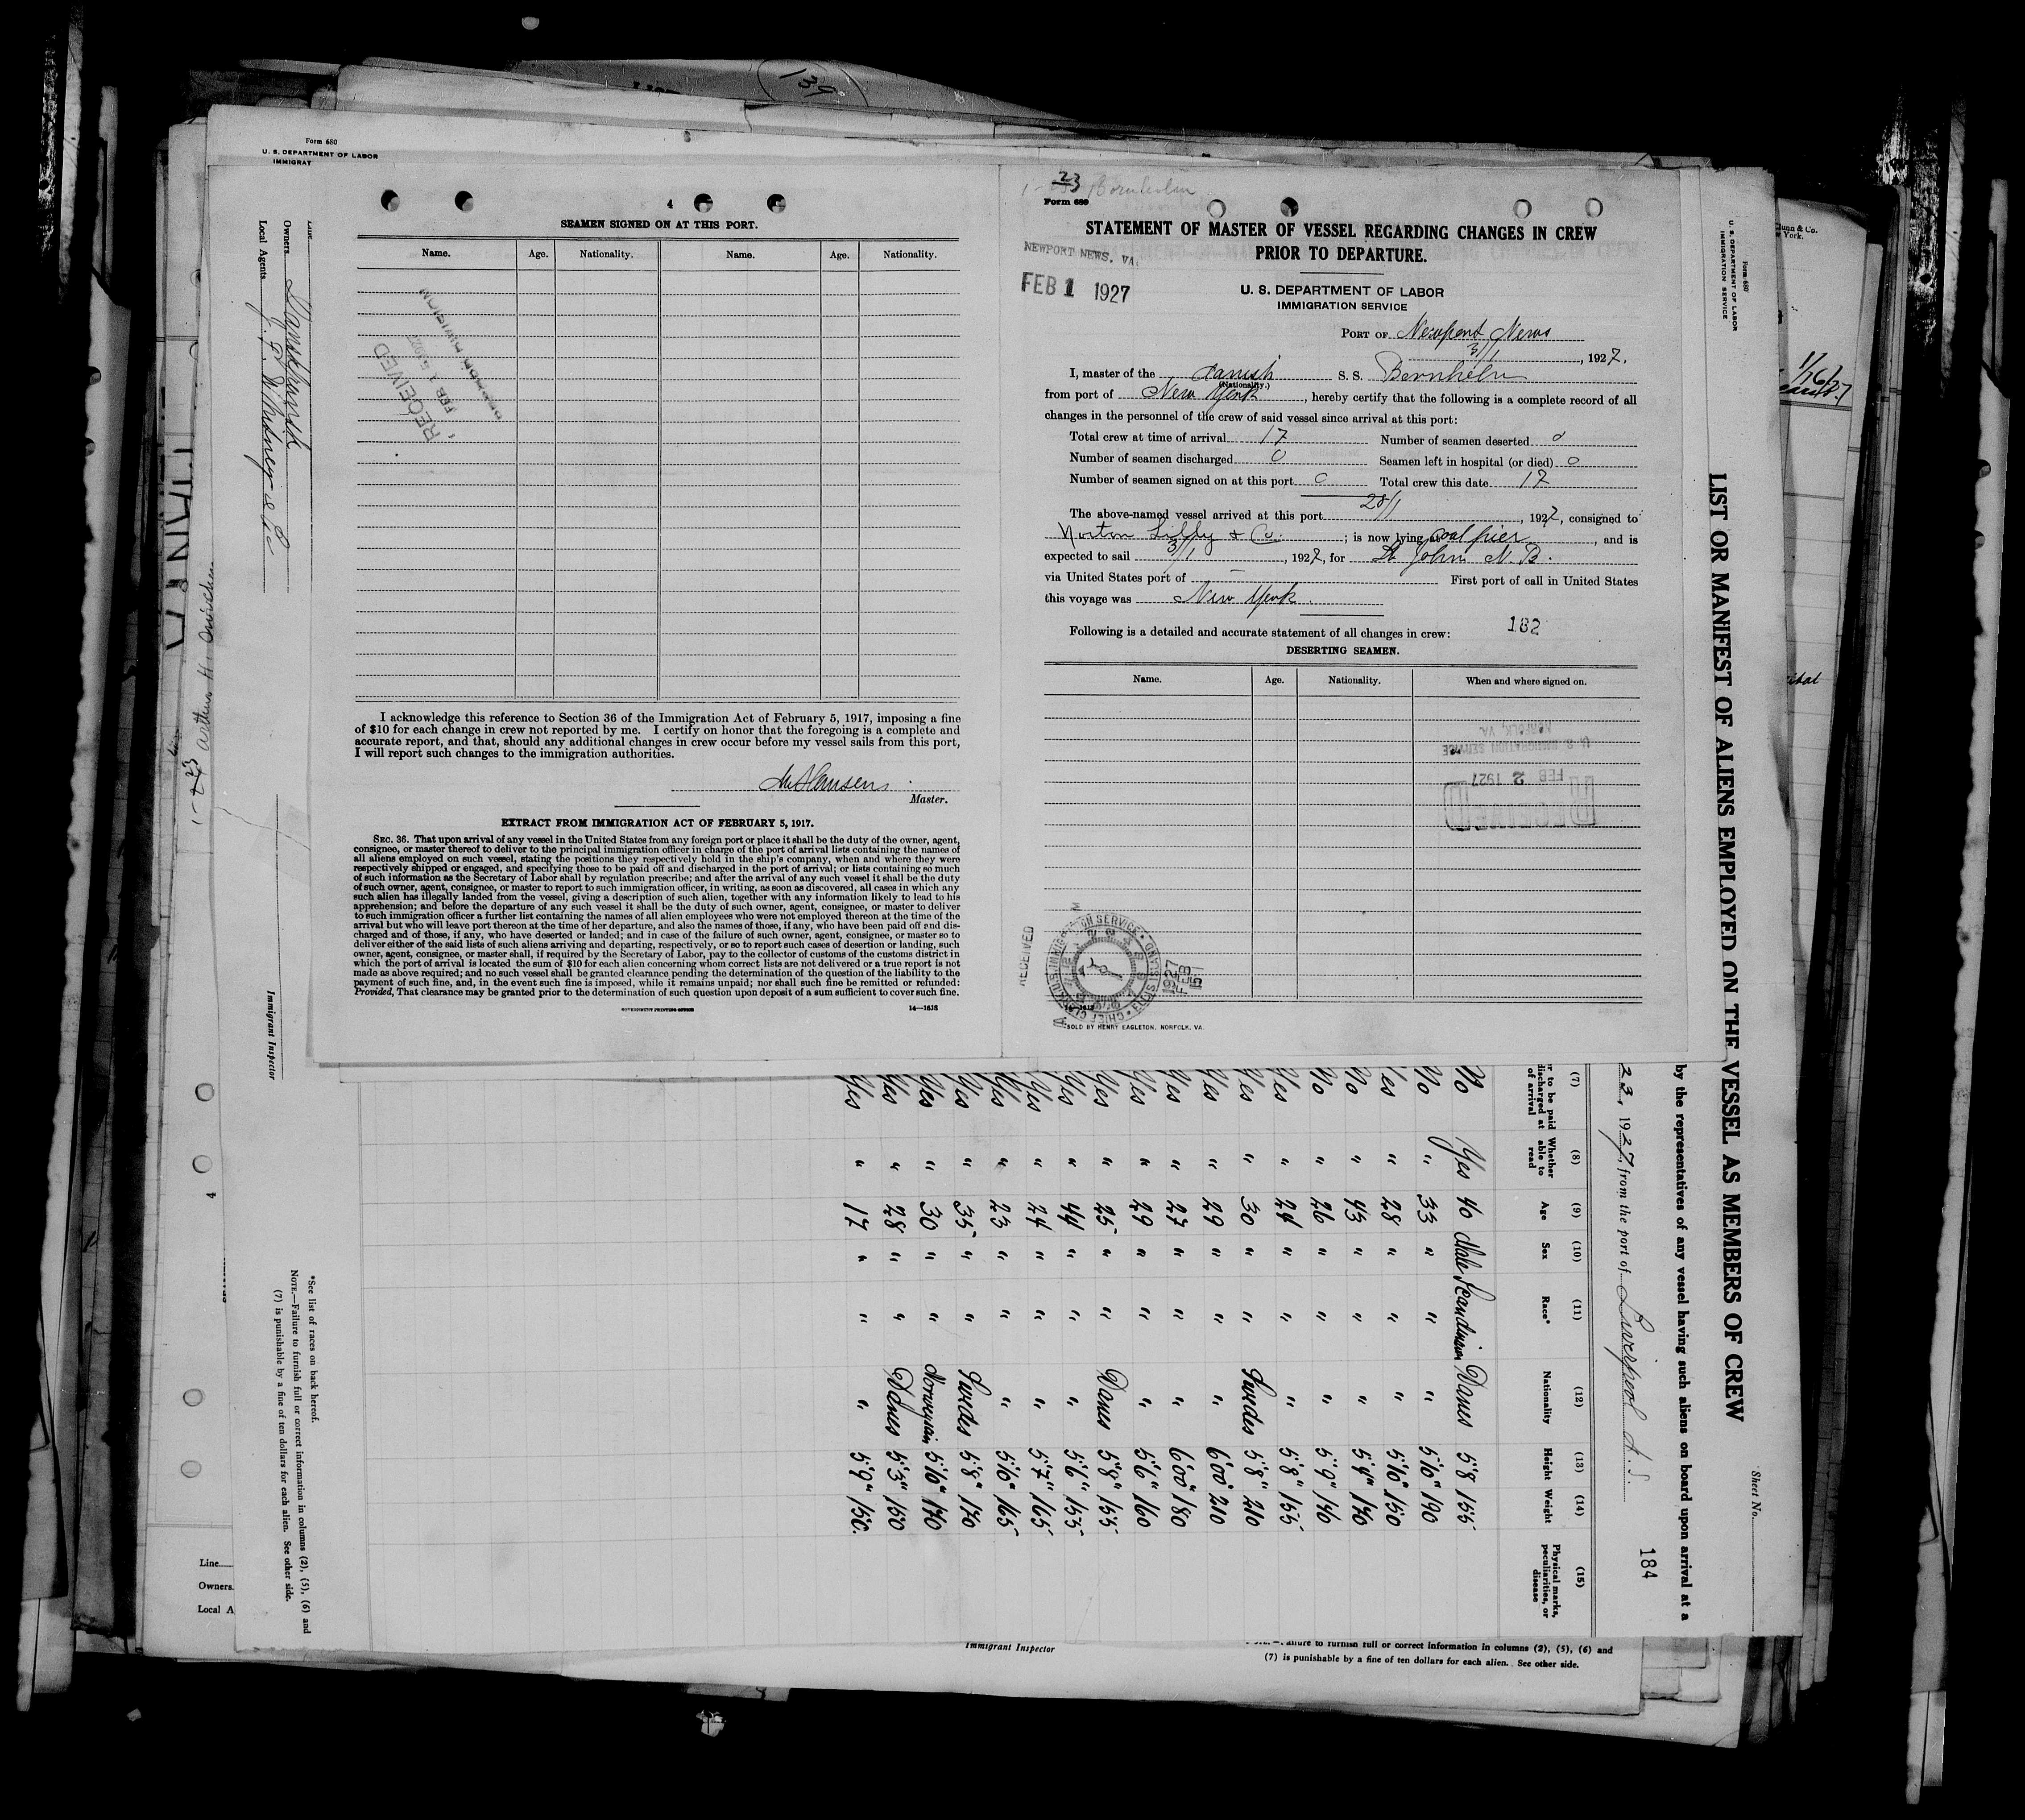 139
Form 680
U. S. DEPARTMENT OF LABOR
IMMIGRAT
Owners Danskfransk
Local Agents
4
SEAMEN SIGNED ON AT THIS PORT.
Name. Age. Nationality. Name. Age. Nationality.
RECEIVED
I acknowledge this reference to Section 36 of the Immigration Act of February 5, 1917, imposing a fine
of $10 for each change in crew not reported by me. I certify on honor that the foregoing is a complete and
accurate report, and that, should any additional changes in crew occur before my vessel sails from this port,
I will report such changes to the immigration authorities.
Hansen
Master.
EXTRACT FROM IMMIGRATION ACT OF FEBRUARY 5, 1917.
SEC. 36. That upon arrival of any vessel in the United States from any foreign port or place it shall be the duty of the owner, agent,
consignee, or master thereof to deliver to the principal immigration officer in charge of the port of arrival lists containing the names of
all aliens employed on such vessel, stating the positions they respectively hold in the ship's company, when and where they were
respectively shipped or engaged, and specifying those to be paid off and discharged in the port of arrival; or lists containing so much
of such information as the Secretary of Labor shall by regulation prescribe; and after the arrival of any such vessel it shall be the duty
of such owner, agent, consignee, or master to report to such immigration officer, in writing, as soon as discovered, all cases in which any
such alien has illegally landed from the vessel, giving a description of such alien, together with any information likely to lead to his
apprehension; and before the departure of any such vessel it shall be the duty of such owner, agent, consignee, or master to deliver
to such immigration officer a further list containing the names of all alien employees who were not employed thereon at the time of the
arrival but who will leave port thereon at the time of her departure, and also the names of those, if any, who have been paid off and dis-
charged and of those, if any, who have deserted or landed; and in case of the failure of such owner, agent, consignee, or master so to
deliver either of the said lists of such aliens arriving and departing, respectively, or so to report such cases of desertion or landing, such
owner, agent, consignee, or master shall, if required by the Secretary of Labor, pay to the collector of customs of the customs district in
which the port of arrival is located the sum of $10 for each alien concerning whom correct lists are not delivered or a true report is not
made as above required; and no such vessel shall be granted clearance pending the determination of the question of the liability to the
payment of such fine, and, in the event such fine is imposed, while it remains unpaid; nor shall such fine be remitted or refunded:
Provided, That clearance may be granted prior to the determination of such question upon deposit of a sum sufficient to cover such fine.
GOVERNMENT PRINTING OFFICE
23 Bornholm
Form 680
STATEMENT OF MASTER OF VESSEL REGARDING CHANGES IN CREW
PRIOR TO DEPARTURE.
NEWPORT NEWS, VA.
FEB 1 1927
U. S. DEPARTMENT OF LABOR
IMMIGRATION SERVICE
PORT OF Newport News
3/1, 1927.
I, master of the danish S. S. Bornholm
(Nationality.)
from port of New York, hereby certify that the following is a complete record of all
changes in the personnel of the crew of said vessel since arrival at this port:
Total crew at time of arrival 17 Number of seamen deserted 0
Number of seamen discharged 0 Seamen left in hospital (or died) 0
Number of seamen signed on at this port 0 Total crew this date 17
The above-named vessel arrived at this port 28/1, 1927, consigned to
Norton Lilly & Co.; is now lying at coal pier, and is
expected to sail 3/1, 1927, for St John N. B.
via United States port of — First port of call in United States
this voyage was New York.
182
Following is a detailed and accurate statement of all changes in crew:
DESERTING SEAMEN.
Name. Age. Nationality. When and where signed on.
U. S. IMMIGRATION SERVICE
NORFOLK, VA.
FEB 2 1927
RECEIVED
RECEIVED
ELLIS ISLAND
1927
FEB
SOLD BY HENRY EAGLETON, NORFOLK, VA.
Form 680
U. S. DEPARTMENT OF LABOR
IMMIGRATION SERVICE
Sheet No.
LIST OR MANIFEST OF ALIENS EMPLOYED ON THE VESSEL AS MEMBERS OF CREW
by the representatives of any vessel having such aliens on board upon arrival at a
184
23, 1927, from the port of Liverpool
(7) (8) (9) (10) (11) (12) (13) (14) (15)
r to be paid discharged at of arrival
Whether able to read
Age
Sex
Race*
Nationality
Height
Weight
Physical marks, peculiarities, or disease
No Yes 40 Male Scandinavian Danes 5'8 155
No " 33 " " " 5'10" 190
Yes " 28 " " " 5'10" 150
No " 43 " " "
No " 26 " " " 5'9"
Yes " 24 " " " 5'8" 155
Yes " 30 " " Swedes 5'8" 210
Yes " 29 " " " 6'00" 210
Yes " 27 " " " 6'00" 180
Yes " 29 " " " 5'6" 160
Yes " 25 " " Danes 5'8" 155
Yes " 44 " " " 5'6" 155
Yes " 24 " " " 5'7" 165
Yes " 23 " " " 5'6" 165
Yes " 35 " " Swedes 5'8" 170
Yes " 30 " " Norwegian 5'10" 170
Yes " 28 " " Danes 5'3" 150
Yes " 17 " " " 5'9" 150.
Immigrant Inspector
*See list of races on back hereof.
NOTE.—Failure to furnish full or correct information in columns (2), (5), (6) and
(7) is punishable by a fine of ten dollars for each alien. See other side.
4
Line
Owners
Local A
Immigrant Inspector
ailure to furnish full or correct information in columns (2), (5), (6) and
(7) is punishable by a fine of ten dollars for each alien. See other side.